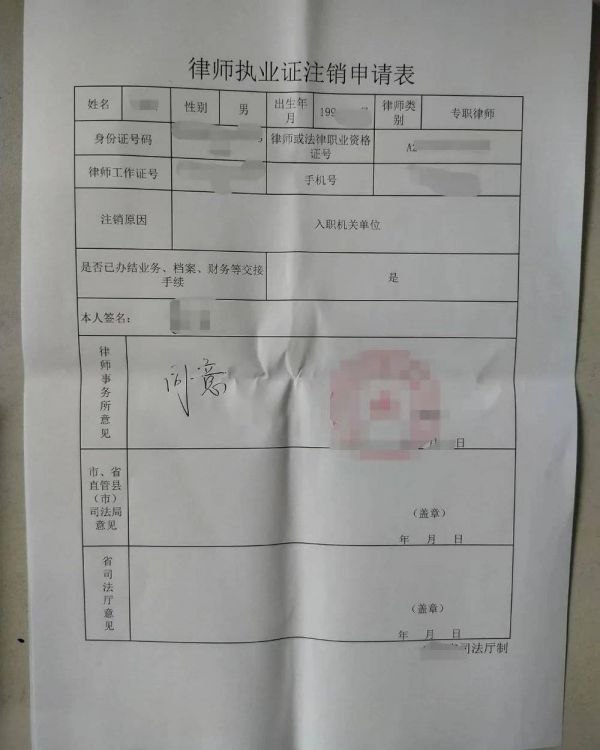 律师执业证注销申请表
姓名 性别 男 出生年月 199 律师类别 专职律师
身份证号码 律师或法律职业资格证号 A
律师工作证号 手机号
注销原因 入职机关单位
是否已办结业务、档案、财务等交接手续 是
本人签名：
律师事务所意见 同意
月 日
市、省直管县（市）司法局意见 （盖章）
年 月 日
省司法厅意见 （盖章）
年 月 日
司法厅制